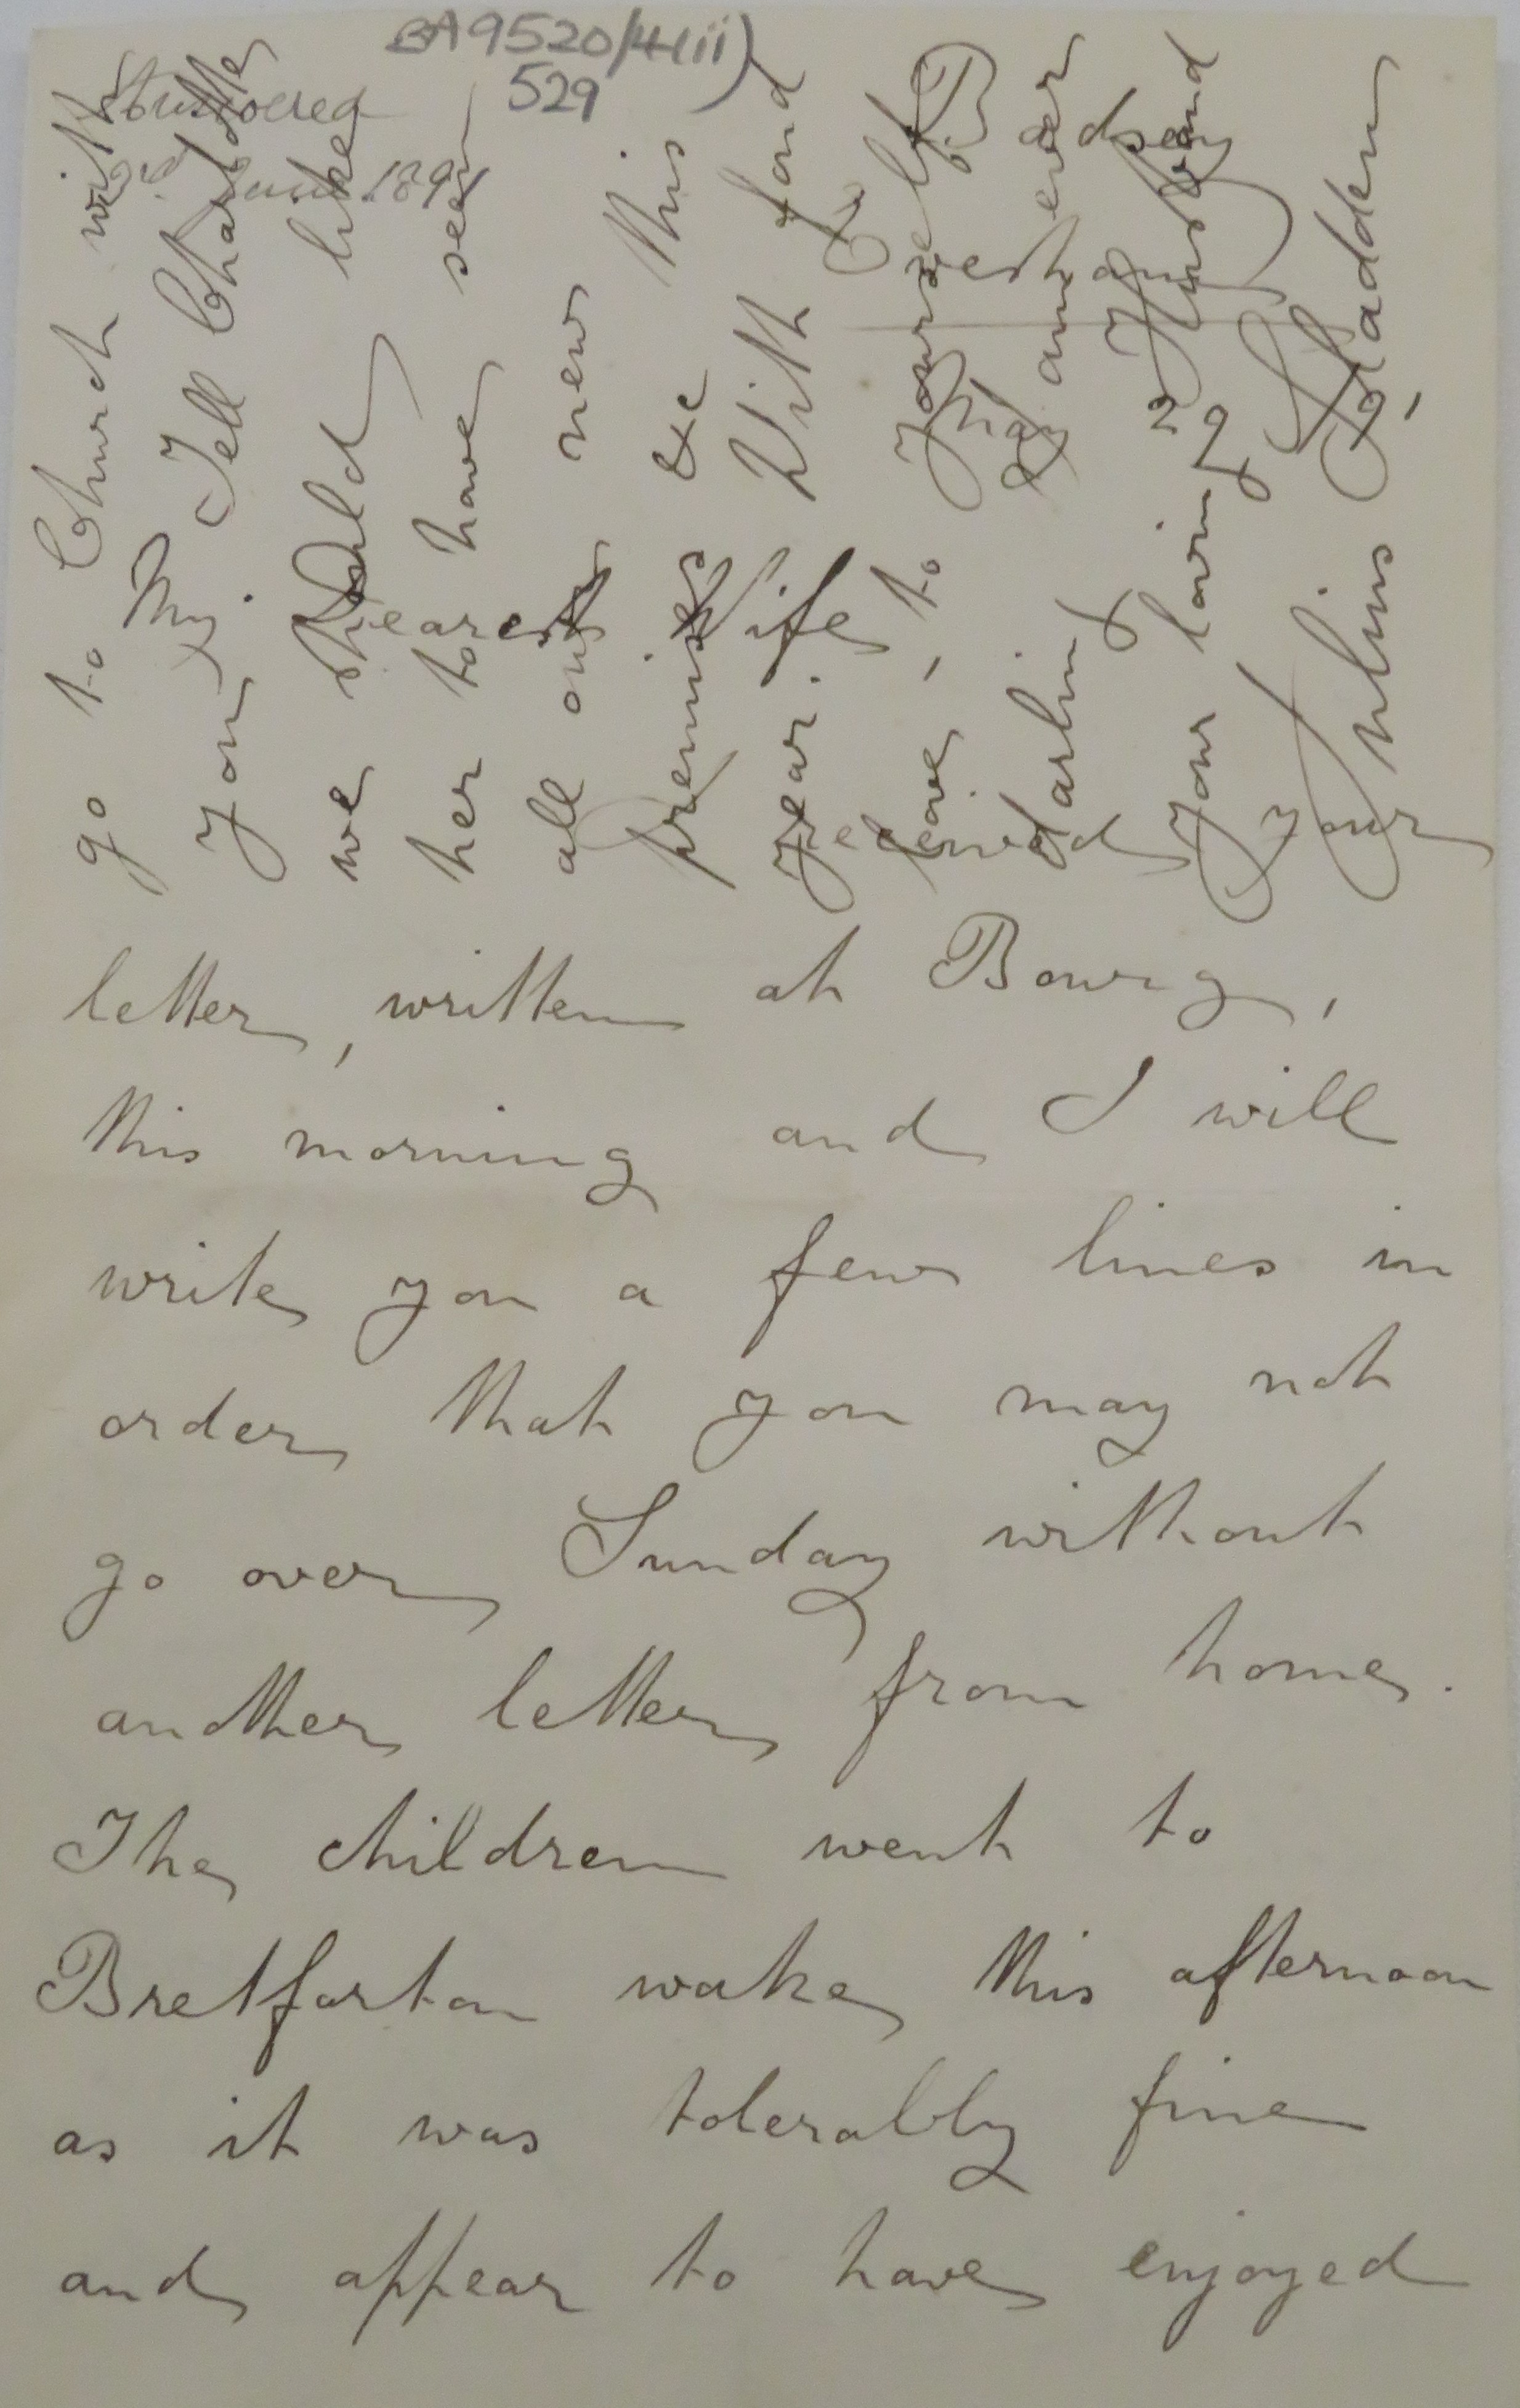 BA9520/4(ii)
529
Answered
June 1891
Badsey
May 29
My Dearest Wife
received
letter, written at Bourg,
this morning and I will
write you a few lines in
order that you may not
go over Sunday without
another letter from home.
The children went to
Bretforton wake this afternoon
as it was tolerably fine
and appear to have enjoyed
go to Church with
you. Tell Charlotte
we should like
her to have seen
all our new
premises &c this
year. With fond
love, to yourself
darling I am ever
your loving Husband
Your Julius Sladden